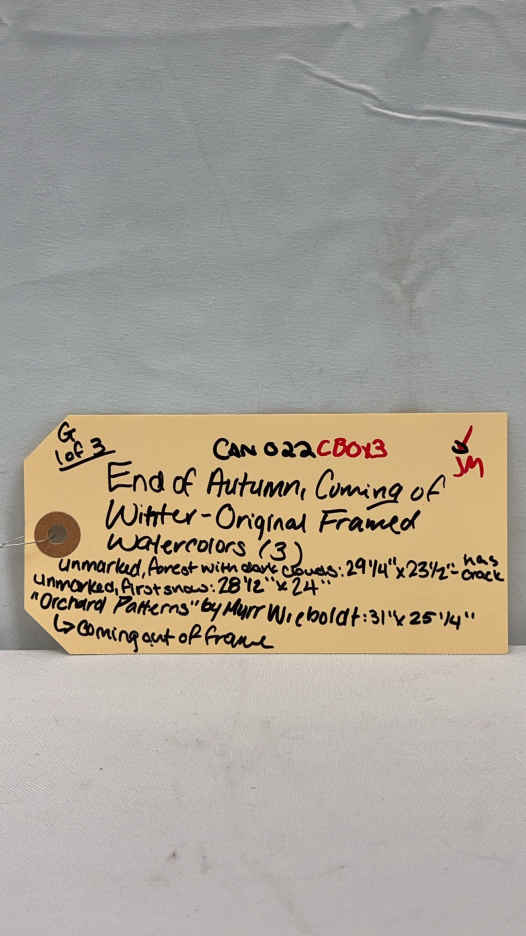 G
1 of 3
CAN 022 CBOX3
JM
End of Autumn, Coming of
Winter - Original Framed
Watercolors (3)
unmarked, forest with dark clouds: 29 1/4" x 23 1/2" - has crack
unmarked, first snow: 28 1/2" x 24"
"Orchard Patterns" by Murr Wieboldt: 31" x 25 1/4"
↳ coming out of frame